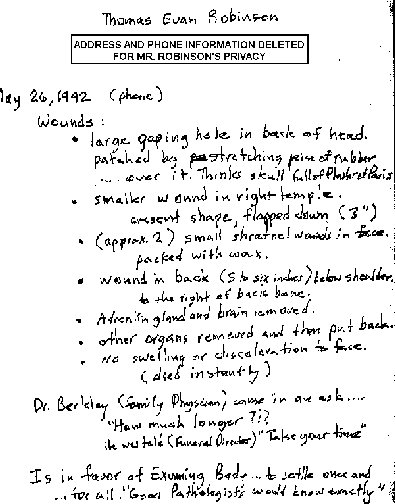 Thomas Evan Robinson
ADDRESS AND PHONE INFORMATION DELETED
FOR MR. ROBINSON'S PRIVACY
May 26, 1992 (phone)
Wounds:
• large gaping hole in back of head.
patched by stretching piece of rubber
.... over it. Thinks skull full of Plaster of Paris
• smaller wound in right temple.
crescent shape, flapped down (3")
• (approx. 2) small shrapnel wounds in face.
packed with wax.
• wound in back (5 to six inches) below shoulder
to the right of back bone.
• Adrenlin gland and brain removed.
• other organs removed and then put back.
• No swelling or discoloration to face.
(died instantly)
Dr. Berkley (family physician) came in an ask....
"How much longer ?!?
He was told (Funeral Director) "Take your time"
Is in favor of Exuming Body ... to settle once and
... for all. "Good Pathologists would know exactly"